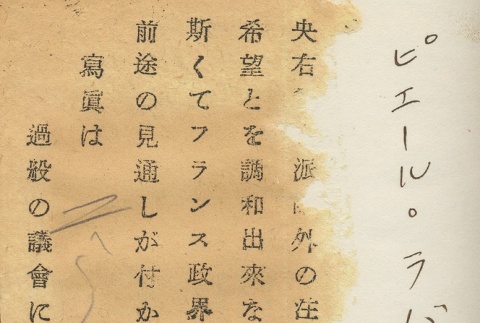 ピエール。ラバ
央右 派 外の在
希望とを調和出來な
斯くてフランス政界
前途の見通しが付か
寫眞は
過般の議會に